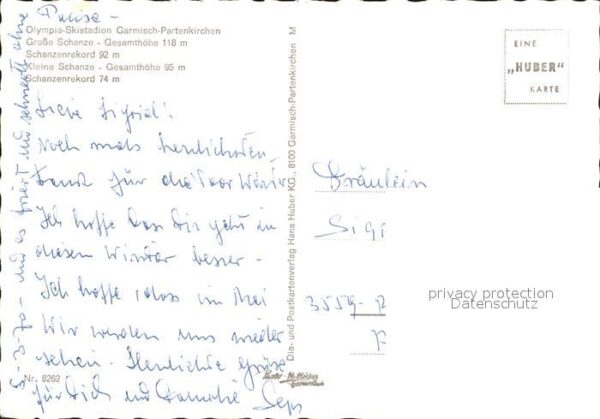 5-3-70 - und es friert und schneit ohne
Pause -
Olympia-Skistadion Garmisch-Partenkirchen
Große Schanze - Gesamthöhe 118 m
Schanzenrekord 92 m
Kleine Schanze - Gesamthöhe 95 m
Schanzenrekord 74 m
Liebe Sigrid!
Noch mals herzlichsten
Dank für die
Ich hoffe dass Dir geht in
diesem Winter besser -
Ich hoffe, dass im Mai
Wir werden uns wieder
sehen - Herzlichte Grüße
für Dich und Familie Sepp
Nr. 8262
Dia- und Postkartenverlag Hans Huber KG., 8100 Garmisch-Partenkirchen M
EINE
„HUBER"
KARTE
Fräulein
Sigi
3559 -
F
privacy protection
Datenschutz